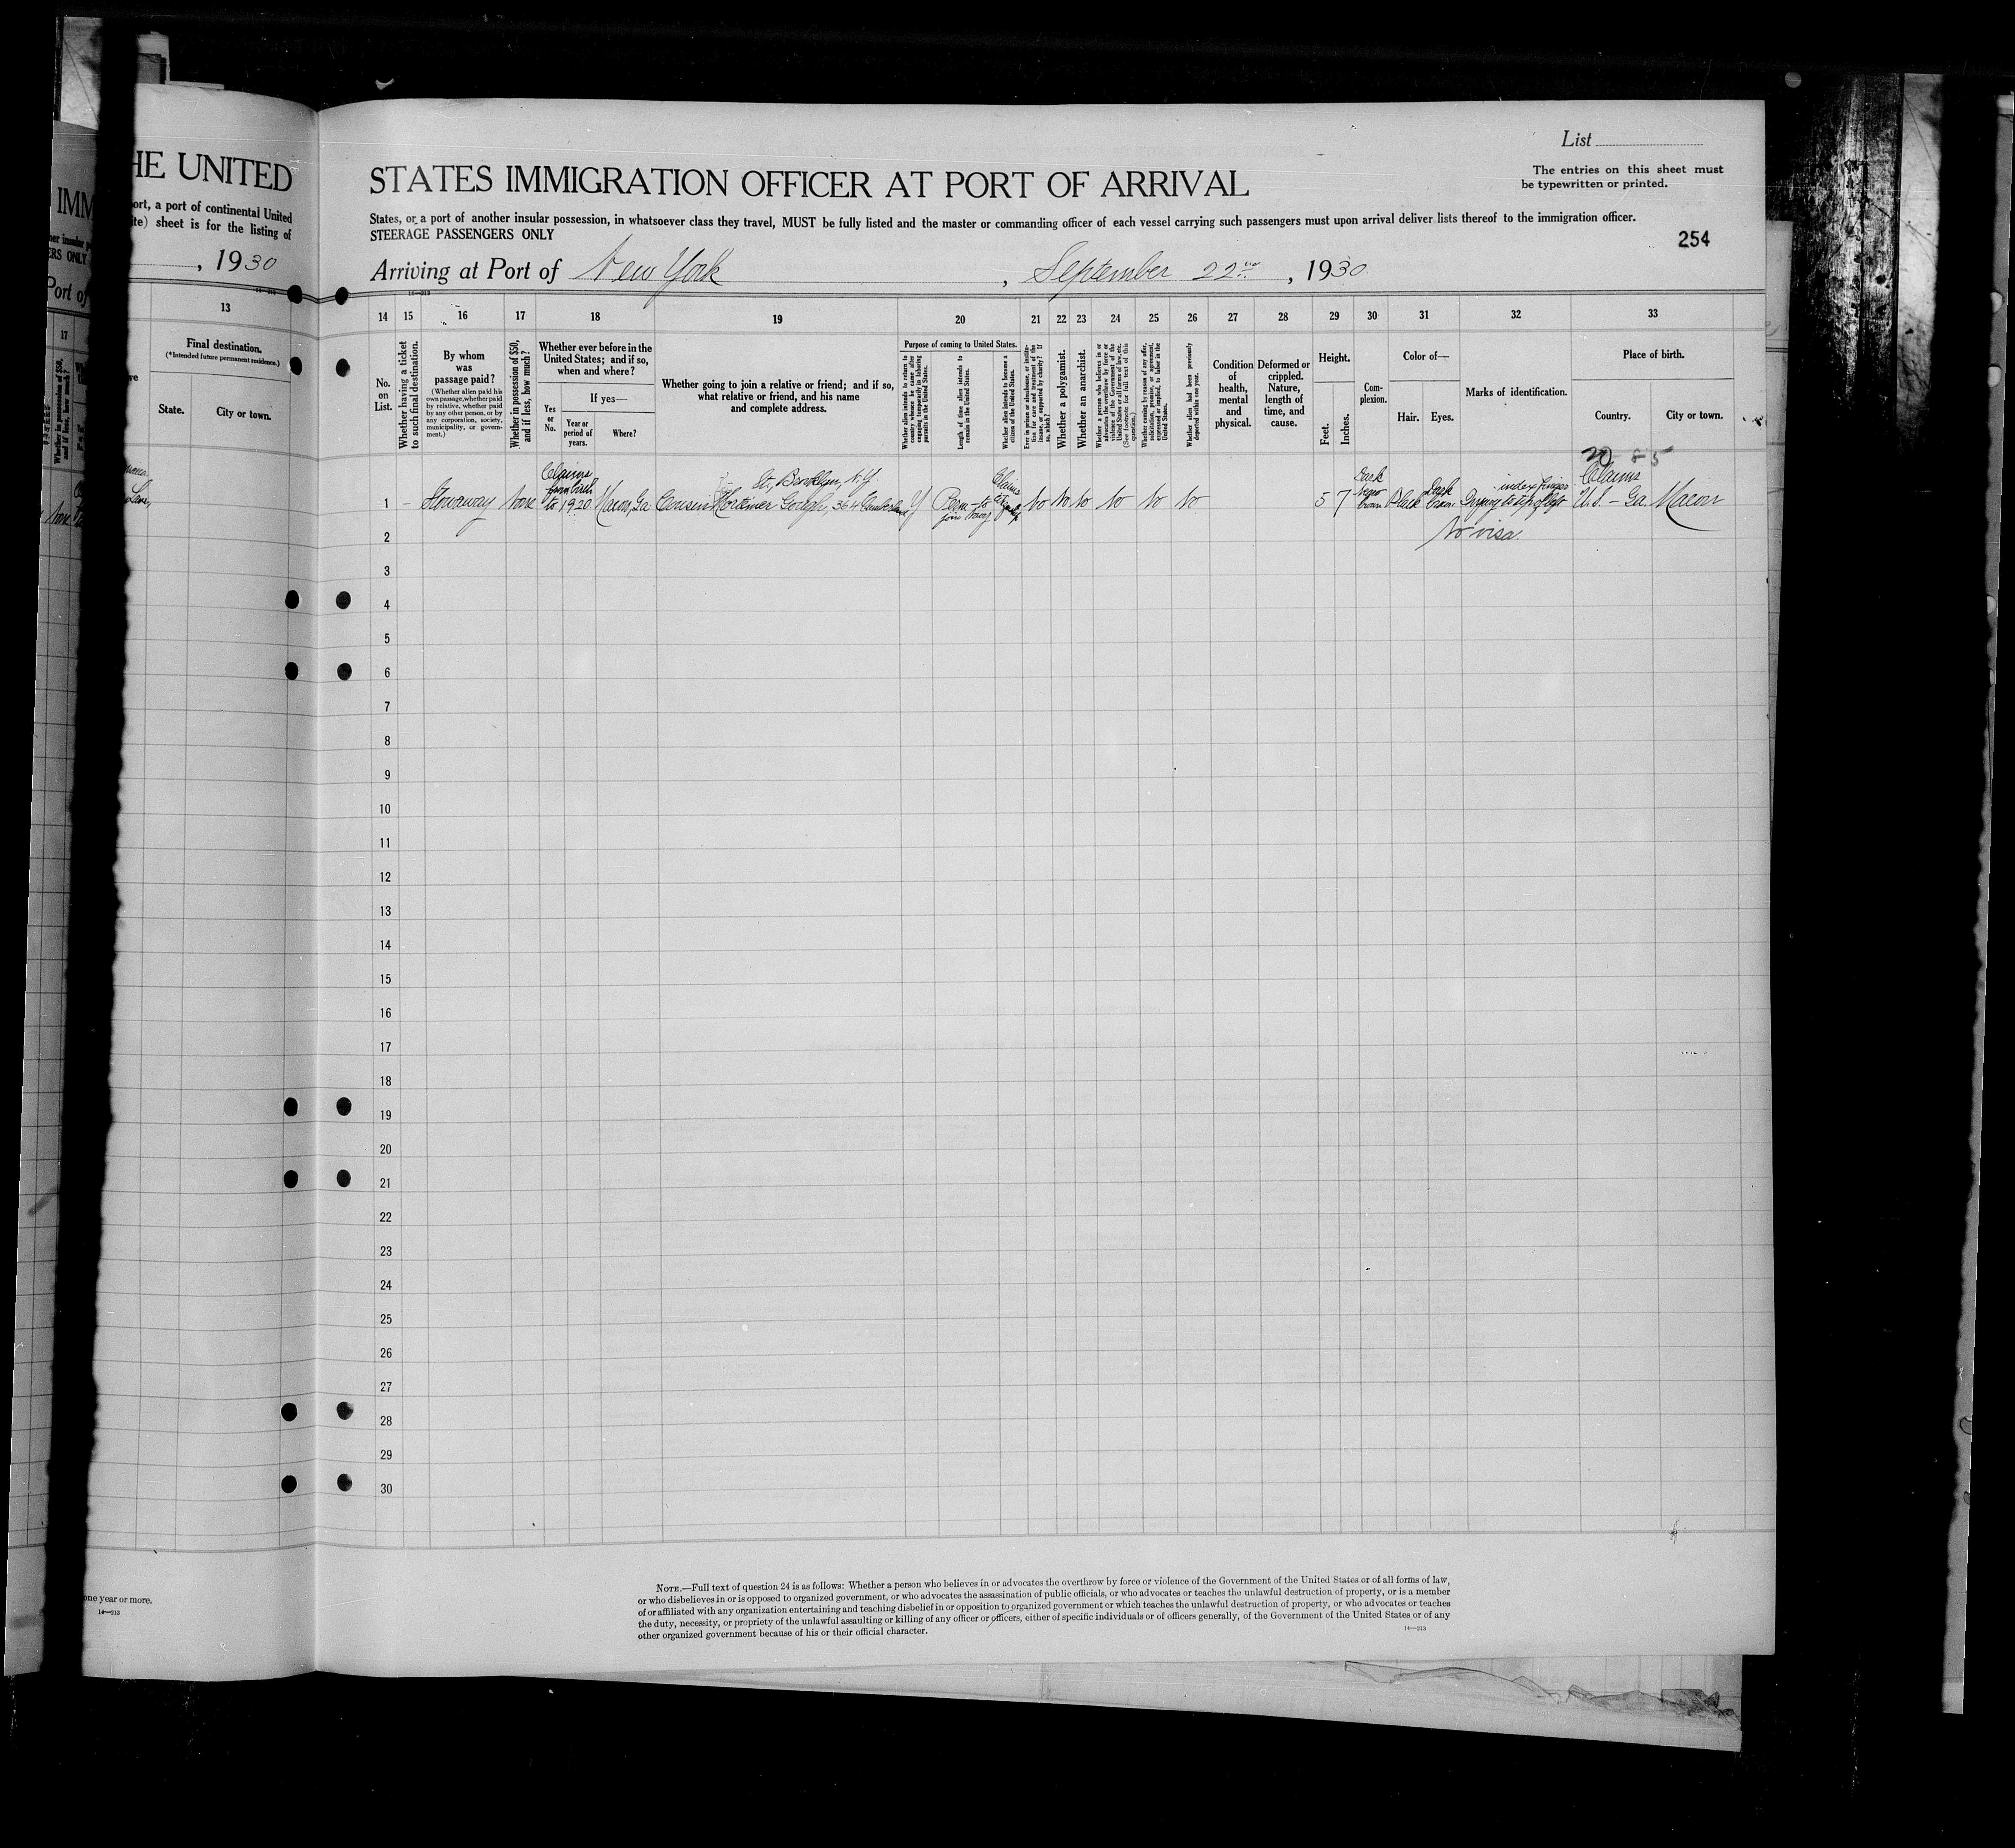 HE UNITED
ort, a port of continental United
te) sheet is for the listing of
, 1930
13
Final destination.
(*Intended future permanent residence.)
State. City or town.
one year or more.
14—213
IMM
ERS ONLY
Port of
17
List
The entries on this sheet must
be typewritten or printed.
STATES IMMIGRATION OFFICER AT PORT OF ARRIVAL
States, or a port of another insular possession, in whatsoever class they travel, MUST be fully listed and the master or commanding officer of each vessel carrying such passengers must upon arrival deliver lists thereof to the immigration officer.
STEERAGE PASSENGERS ONLY
254
Arriving at Port of New York, September 22nd, 1930
14—213
14 15 16 17 18 19 20 21 22 23 24 25 26 27 28 29 30 31 32 33
No. on List.
Whether having a ticket to such final destination.
By whom was passage paid?
(Whether alien paid his own passage, whether paid by relative, whether paid by any other person, or by any corporation, society, municipality, or government.)
Whether in possession of $50, and if less, how much?
Whether ever before in the United States; and if so, when and where?
Yes or No.
If yes—
Year or period of years.
Where?
Whether going to join a relative or friend; and if so, what relative or friend, and his name and complete address.
Purpose of coming to United States.
Whether alien intends to return to country whence he came after engaging temporarily in laboring pursuits in the United States.
Length of time alien intends to remain in the United States.
Whether alien intends to become a citizen of the United States.
Ever in prison or almshouse, or institution for care and treatment of the insane, or supported by charity? If so, which?
Whether a polygamist.
Whether an anarchist.
Whether a person who believes in or advocates the overthrow by force or violence of the Government of the United States or all forms of law, etc. (See footnote for full text of this question.)
Whether coming by reason of any offer, solicitation, promise, or agreement, expressed or implied, to labor in the United States.
Whether alien had been previously deported within one year.
Condition of health, mental and physical.
Deformed or crippled. Nature, length of time, and cause.
Height.
Feet. Inches.
Complexion.
Color of—
Hair. Eyes.
Marks of identification.
Place of birth.
Country. City or town.
20 85
1 - Stowaway None Claims from birth to 1920 Macon, Ga Cousin Mortimer 364 Cumberland St., Brooklyn, N.Y. Perm Claims No No No No No No 5 7 Dark Brown Black Dark Brown Injury to tip of left index finger Claims U.S. - Ga. Macon
2 No visa.
3
4
5
6
7
8
9
10
11
12
13
14
15
16
17
18
19
20
21
22
23
24
25
26
27
28
29
30
NOTE.—Full text of question 24 is as follows: Whether a person who believes in or advocates the overthrow by force or violence of the Government of the United States or of all forms of law,
or who disbelieves in or is opposed to organized government, or who advocates the assassination of public officials, or who advocates or teaches the unlawful destruction of property, or is a member
of or affiliated with any organization entertaining and teaching disbelief in or opposition to organized government or which teaches the unlawful destruction of property, or who advocates or teaches
the duty, necessity, or propriety of the unlawful assaulting or killing of any officer or officers, either of specific individuals or of officers generally, of the Government of the United States or of any
other organized government because of his or their official character.
14—213